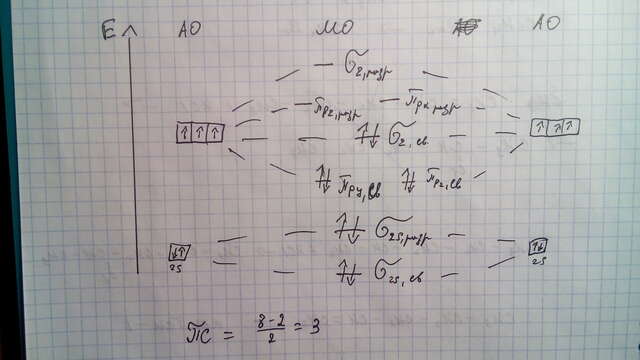 E АО МО АО
σ2,разр
πpz,разр πpx,разр
↑ ↑ ↑ ↑↓ σ2,св ↑ ↑ ↑
↑↓ πpy,св ↑↓ πpz,св
↑↓ σ2s,разр
↓↑ ↑↓
2s ↑↓ σ2s,св 2s
ПС = 8-2/2 = 3